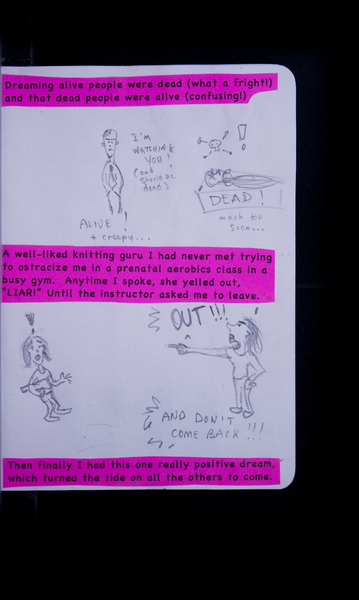 Dreaming alive people were dead (what a fright!)
and that dead people were alive (confusing!)
I'M
WATCHING
YOU!
(and
should be
dead)
!
DEAD!
much too
soon...
ALIVE!
+ creepy...
A well-liked knitting guru I had never met trying
to ostracize me in a prenatal aerobics class in a
busy gym. Anytime I spoke, she yelled out,
"LIAR!" Until the instructor asked me to leave.
OUT!!!
!
AND DON'T
COME BACK!!!
Then finally I had this one really positive dream,
which turned the tide on all the others to come.